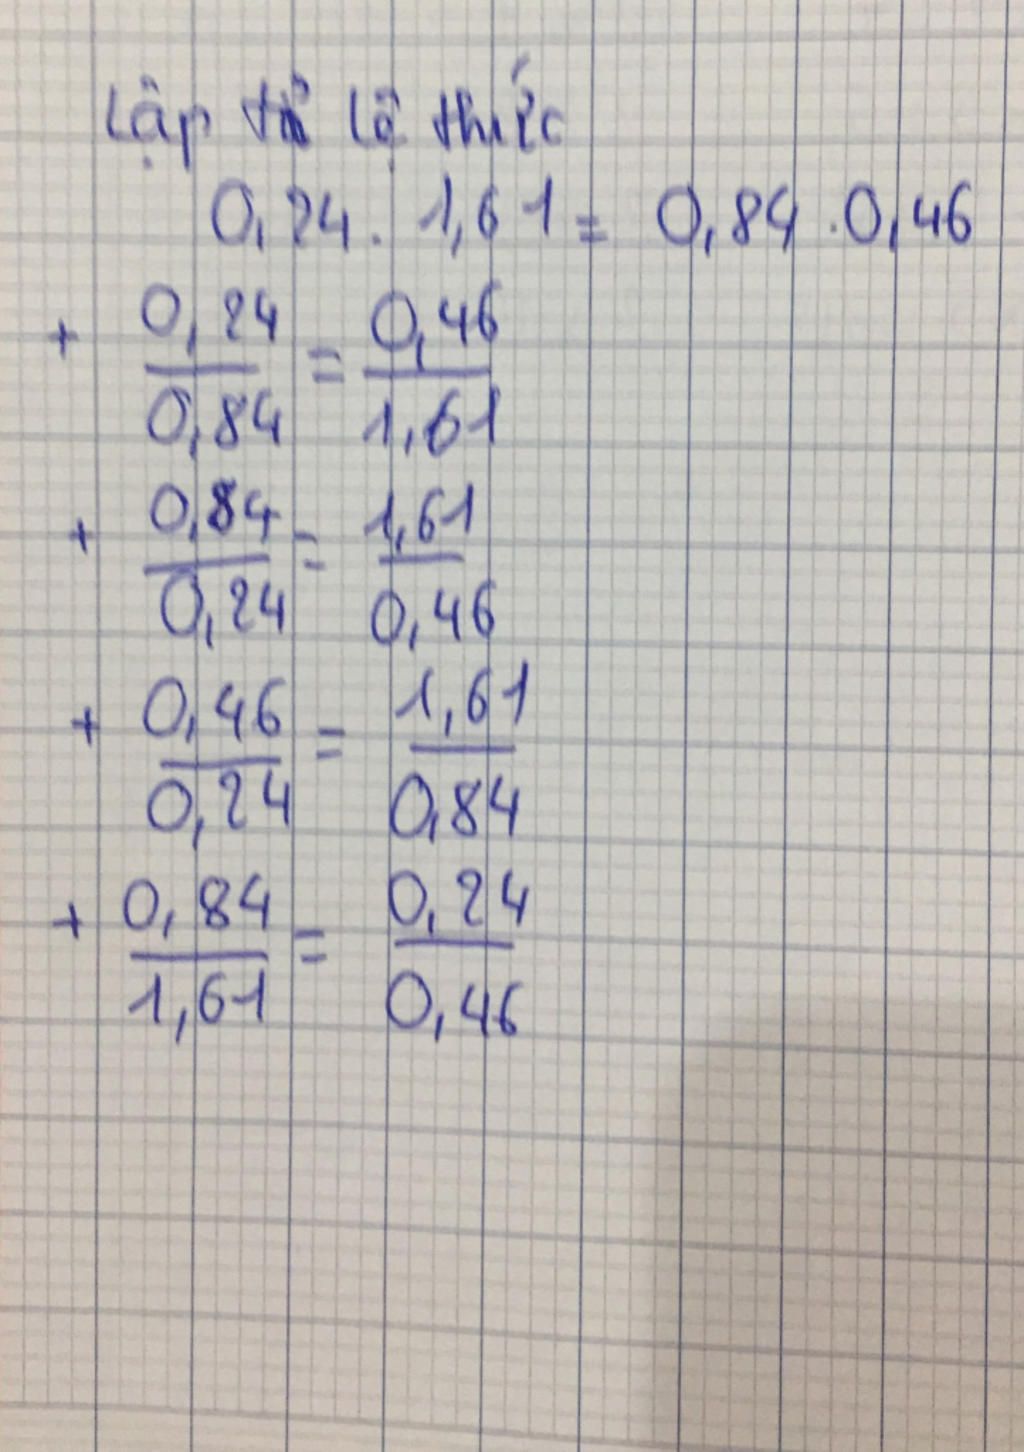 Lập tỉ lệ thức
0,24 . 1,61 = 0,84 . 0,46
+ 0,24/0,84 = 0,46/1,61
+ 0,84/0,24 = 1,61/0,46
+ 0,46/0,24 = 1,61/0,84
+ 0,84/1,61 = 0,24/0,46